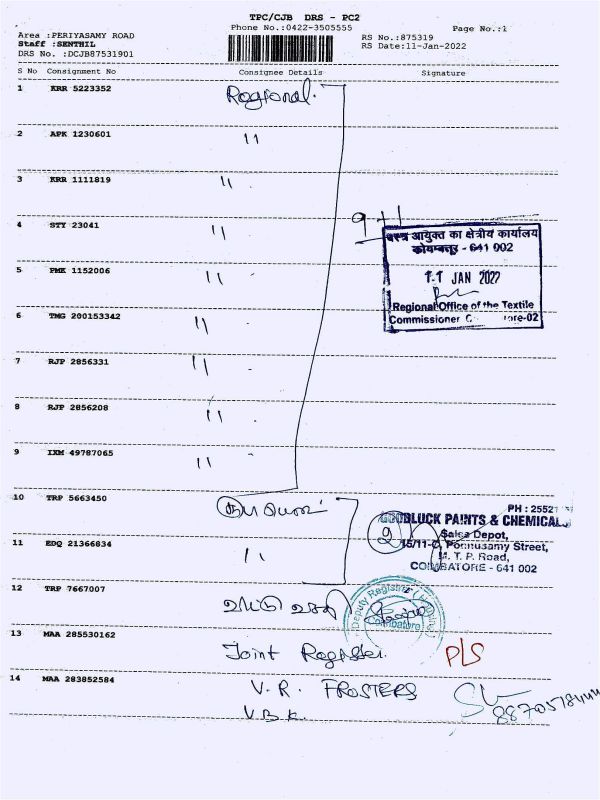 TPC/CJB DRS - PC2
Phone No.:0422-3505555 Page No.:1
Area :PERIYASAMY ROAD RS No.:875319
Staff :SENTHIL RS Date:11-Jan-2022
DRS No. :DCJB87531901
S No Consignment No Consignee Details Signature
1 KRR 5223352 Regional.
2 APK 1230601 "
3 KRR 1111819 "
4 STY 23041 "
वस्त्र आयुक्त का क्षेत्रीय कार्यालय
कोयम्बत्तूर - 641 002
5 PMK 1152006 "
11 JAN 2022
Regional Office of the Textile
6 TMG 200153342 "
Commissioner ore-02
7 RJP 2856331 "
8 RJP 2856208 "
9 IXM 49787065 "
10 TRP 5663450
PH : 25521
GOODLUCK PAINTS & CHEMICAL
Sales Depot,
15/11-C, Ponnusamy Street,
11 EDQ 21366834 "
M. T. P. Road,
COIMBATORE - 641 002
12 TRP 7667007
Deputy Registrar
Coimbatore
13 MAA 285530162 Joint Register. PLS
14 MAA 283852584 V. R. FROSTERS
V.B.K.